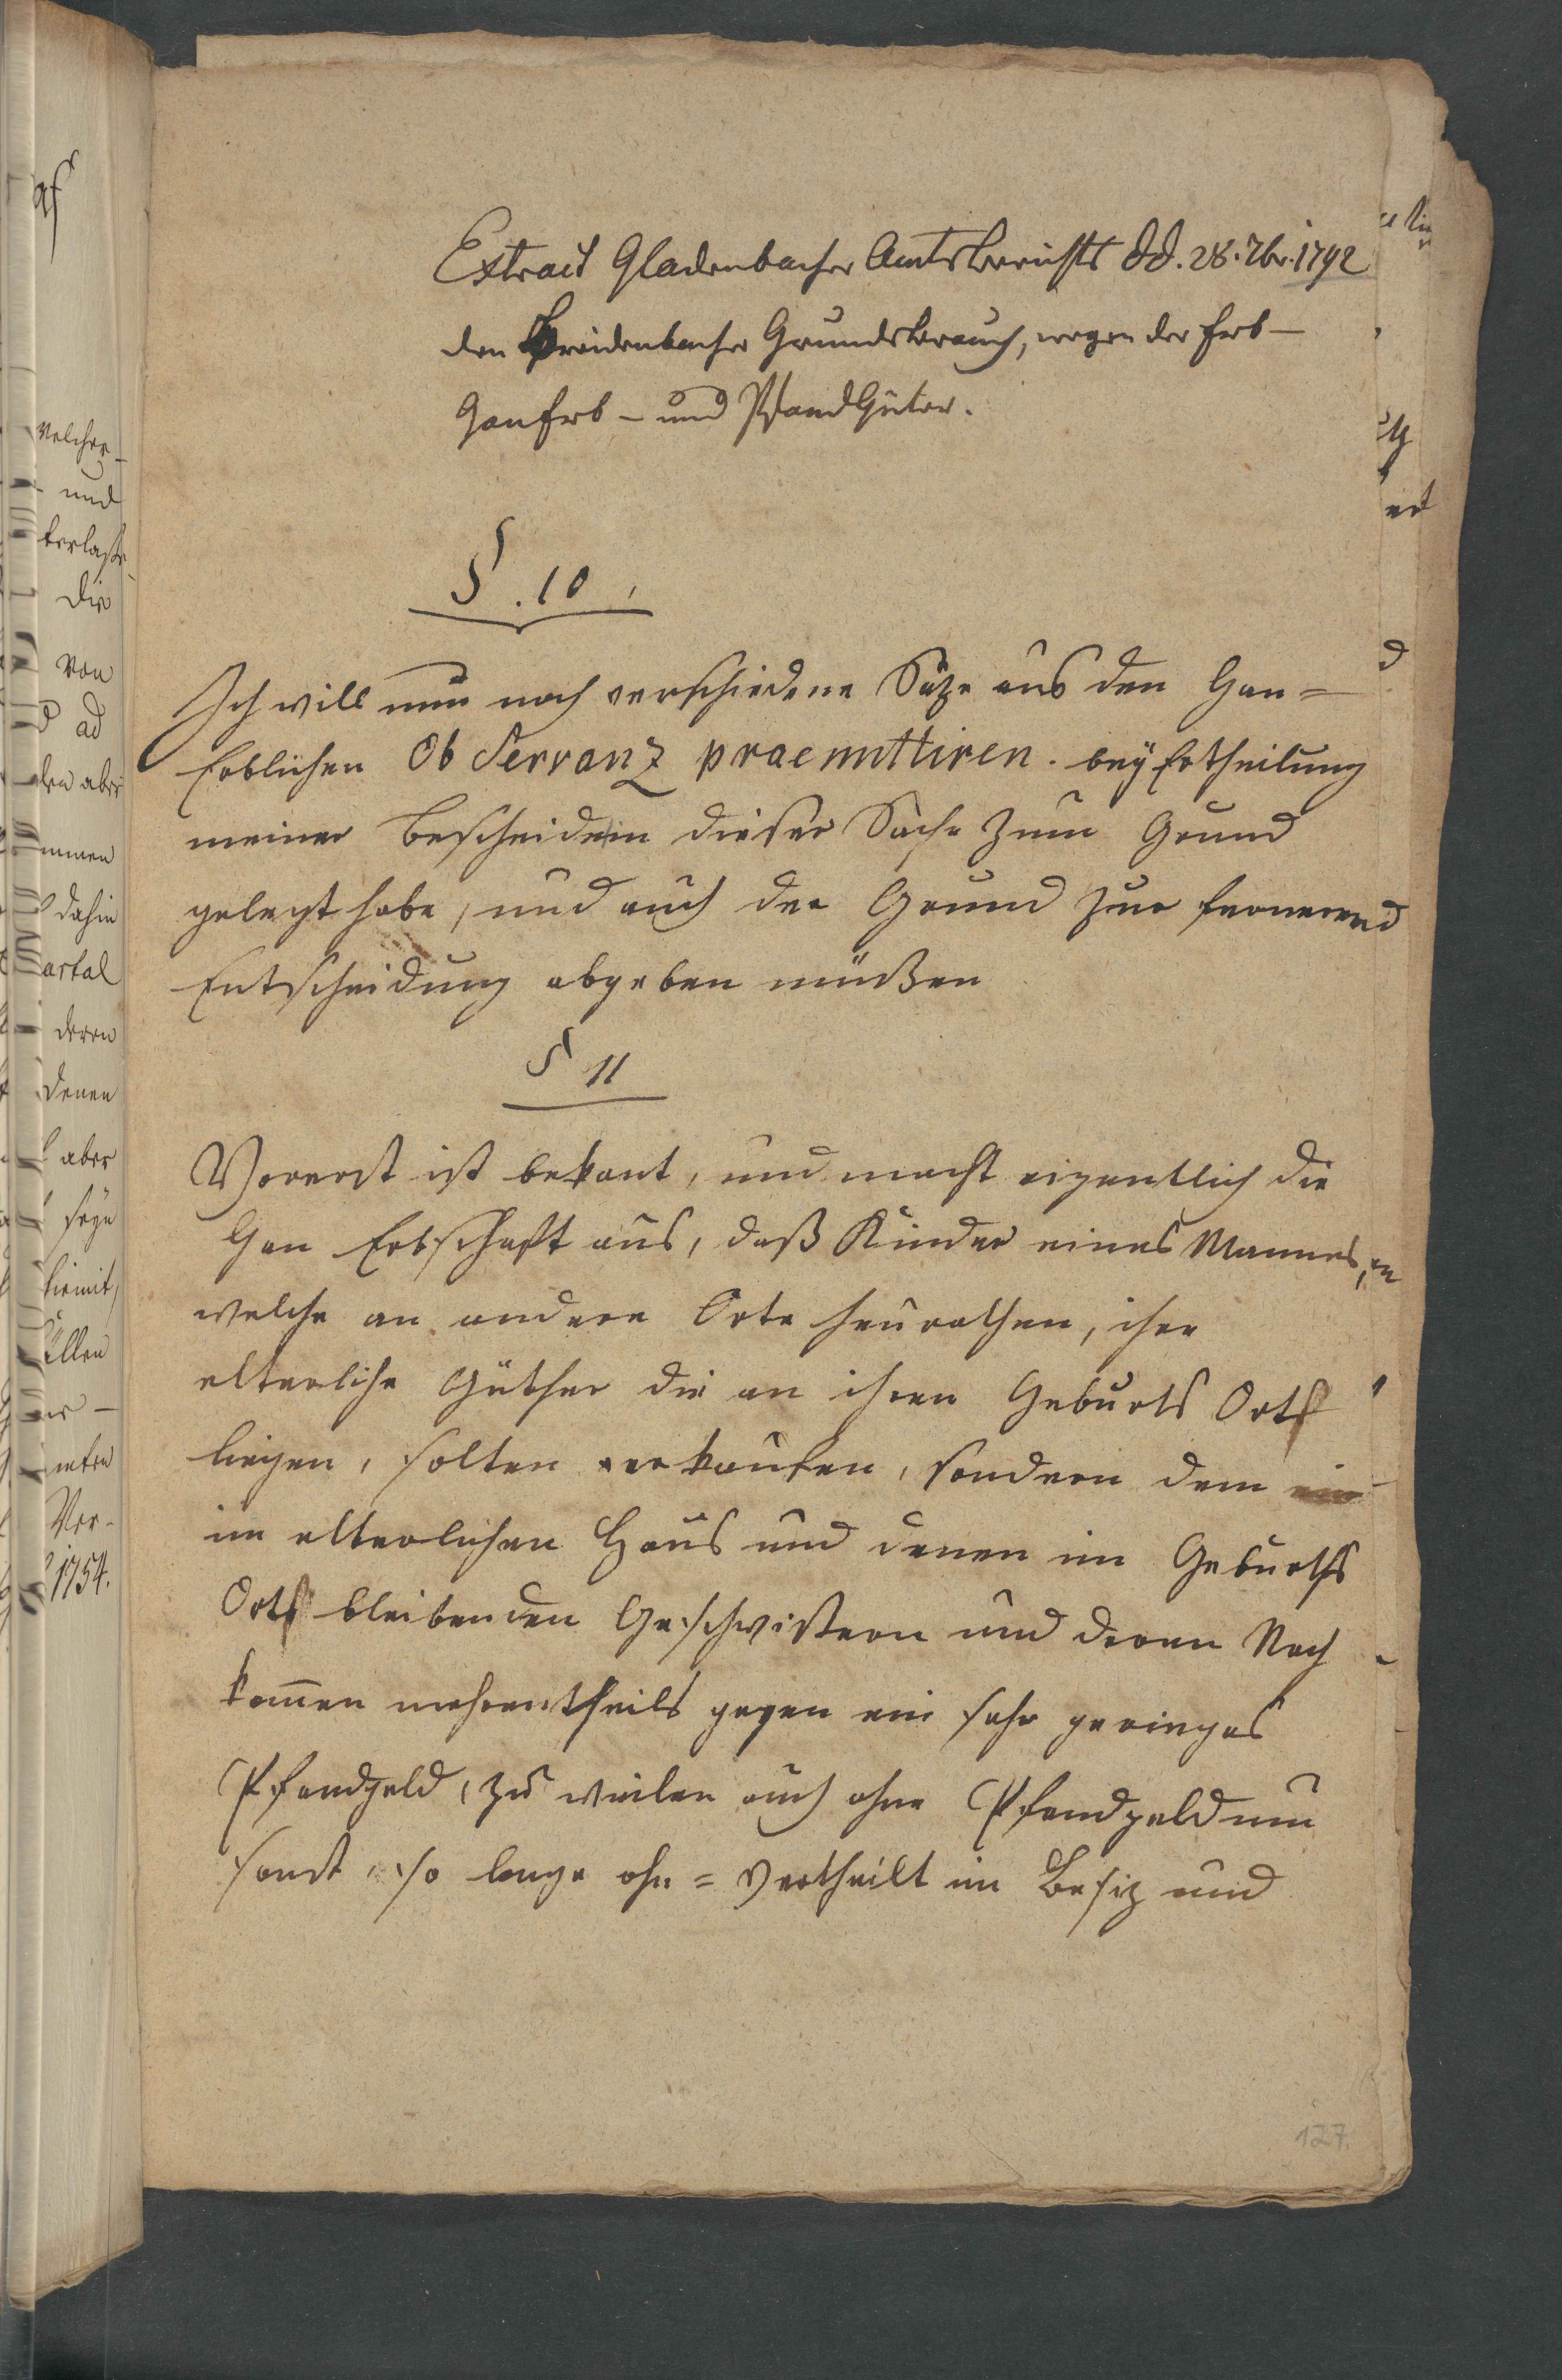 Extract Gladenbacher Amtsberichts dd. 28. 7br. 1792
den Breidenbacher Grundsbrauch, wegen der Erb-
Ganerb- und Pfandgüter.
§. 10.
Ich will nun noch verschiedene Säze aus den Gan=
Erblichen Observanz praemittiren. bey Ertheilung
meiner Bescheide in dieser Sache zum Grund
gelegt habe, und auch der Grund zur fernern
Entscheidung abgeben müßen
§ 11
Vorerst ist bekant, und macht eigentlich die
Gan Erbschaft aus, daß Kinder eines Mannes,
welche an andere Orte heurathen, ihre
elterliche Güther die an ihren Geburts Ort
liegen, selten verkaufen, sondern dem
im elterlichen Haus und denen im Geburths
Ort bleibenden Geschwistern und deren Nach
kom̄en mehrentheils gegen ein sehr geringes
Pfandgeld, zu weilen auch ohne Pfandgeld um
sonst, so lange ohn=vertheilt im Besiz und
127.
welcher
und
die
von
ad
den aber
dahin
deren
denen
aber
seyn
hiemit,
Ver-
1754.